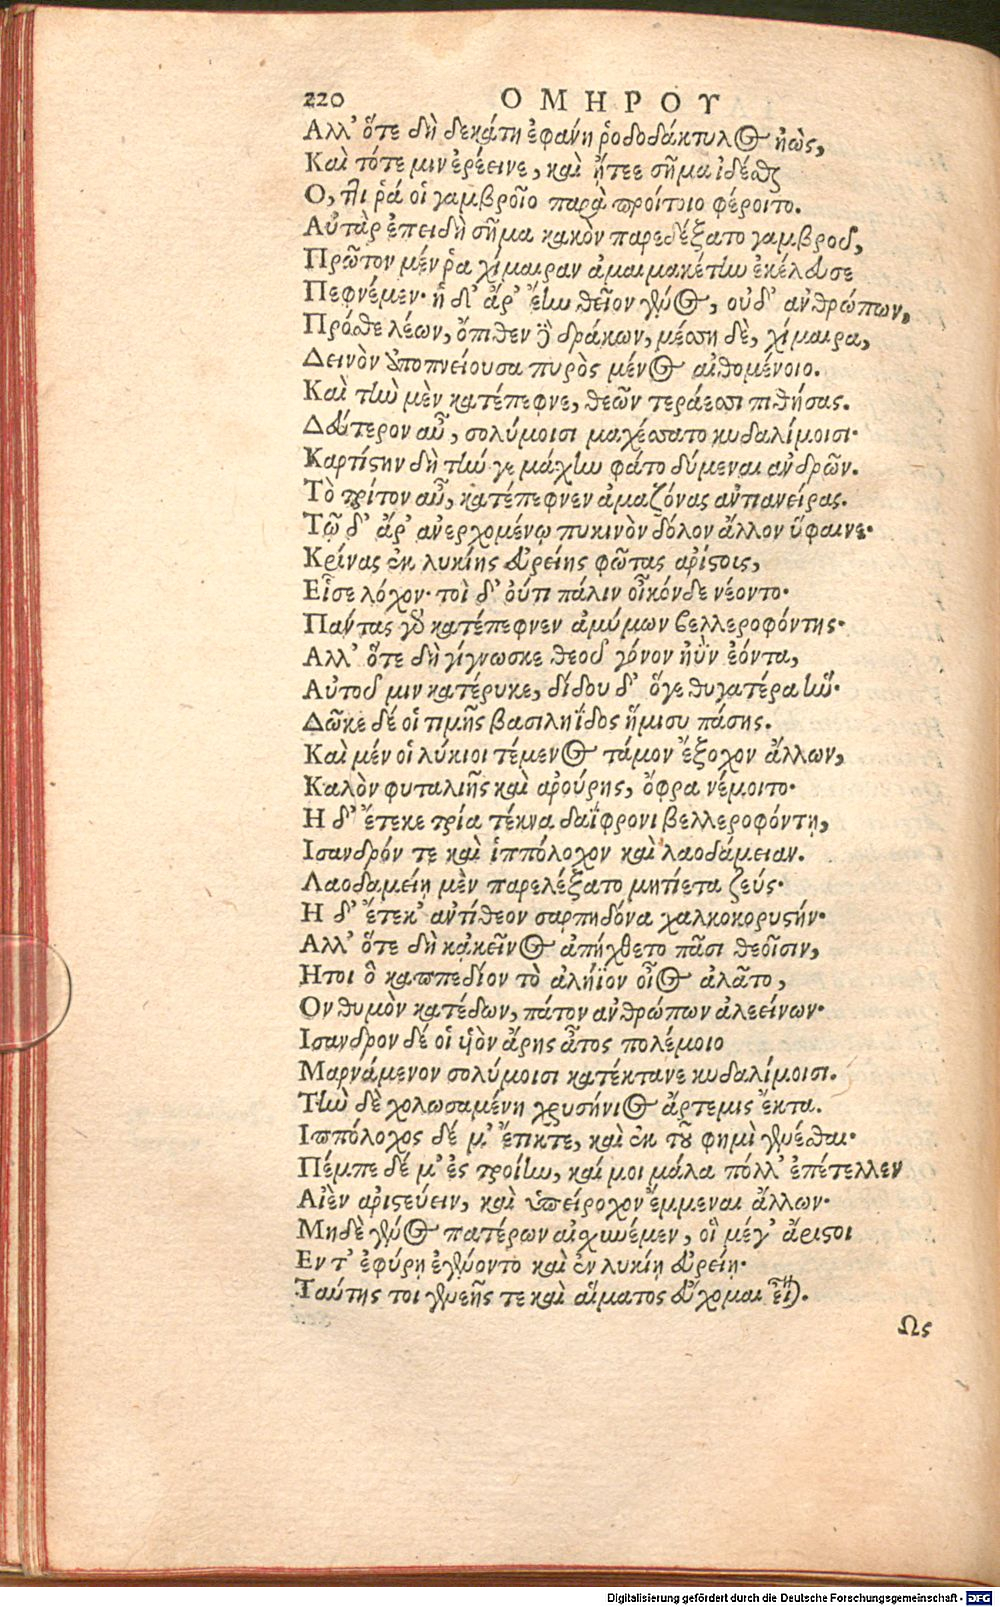 220 ΟΜΗΡΟΥ
Αλλ' ὅτε δὴ δεκάτη ἐφάνη ῥοδοδάκτυλος ἠὼς,
Καὶ τότε μιν ἐρέεινε, καὶ ᾔτεε σῆμα ἰδέσθαι
Ο, ττι ῥά οἱ γαμβροῖο παρὰ προίτοιο φέροιτο.
Αὐτὰρ ἐπειδὴ σῆμα κακὸν παρεδέξατο γαμβροῦ,
Πρῶτον μέν ῥα χίμαιραν ἀμαιμακέτην ἐκέλευσε
Πεφνέμεν· ἡ δ' ἄρ' ἔην θεῖον γένος, οὐδ' ἀνθρώπων,
Πρόσθε λέων, ὄπιθεν δὲ δράκων, μέσση δὲ, χίμαιρα,
Δεινὸν ἀποπνείουσα πυρὸς μένος αἰθομένοιο.
Καὶ τὴν μὲν κατέπεφνε, θεῶν τεράεσσι πιθήσας.
Δεύτερον αὖ, σολύμοισι μαχέσσατο κυδαλίμοισι·
Καρτίστην δὴ τήν γε μάχην φάτο δύμεναι ἀνδρῶν.
Τὸ τρίτον αὖ, κατέπεφνεν ἀμαζόνας ἀντιανείρας.
Τῷ δ' ἄρ' ἀνερχομένῳ πυκινὸν δόλον ἄλλον ὕφαινε·
Κρίνας ἐκ λυκίης εὐρείης φῶτας ἀρίστοις,
Εἷσε λόχον· τοὶ δ' οὔτι πάλιν οἶκόνδε νέοντο·
Παντας γὰρ κατέπεφνεν ἀμύμων βελλεροφόντης·
Αλλ' ὅτε δὴ γίγνωσκε θεοῦ γόνον ἠῢν ἐόντα,
Αὐτοῦ μιν κατέρυκε, δίδου δ' ὅγε θυγατέρα ἥν·
Δῶκε δέ οἱ τιμῆς βασιληΐδος ἥμισυ πάσης.
Καὶ μέν οἱ λύκιοι τέμενος τάμον ἔξοχον ἄλλων,
Καλὸν φυταλιῆς καὶ ἀρούρης, ὄφρα νέμοιτο·
Η δ' ἔτεκε τρία τέκνα δαΐφρονι βελλεροφόντῃ,
Ισανδρόν τε καὶ ἱππόλοχον καὶ λαοδάμειαν.
Λαοδαμείῃ μὲν παρελέξατο μητίετα ζεύς·
Η δ' ἔτεκ' ἀντίθεον σαρπηδόνα χαλκοκορυστήν·
Αλλ' ὅτε δὴ κἀκεῖνος ἀπήχθετο πᾶσι θεοῖσιν,
Ητοι ὃ καππεδίον τὸ ἀλήϊον οἶος ἀλᾶτο,
Ον θυμὸν κατέδων, πάτον ἀνθρώπων ἀλεείνων·
Ισανδρον δέ οἱ υἱὸν ἄρης ἆτος πολέμοιο
Μαρνάμενον σολύμοισι κατέκτανε κυδαλίμοισι.
Τὴν δὲ χολωσαμένη χρυσήνιος ἄρτεμις ἔκτα.
Ιππόλοχος δέ μ' ἔτικτε, καὶ ἐκ τοῦ φημὶ γενέσθαι·
Πέμπε δέ μ' ἐς τροίην, καί μοι μάλα πόλλ' ἐπέτελλεν
Αἰὲν ἀριστεύειν, καὶ ὑπείροχον ἔμμεναι ἄλλων·
Μηδὲ γένος πατέρων αἰσχυνέμεν, οἳ μέγ' ἄριστοι
Εν τ' ἐφύρῃ ἐγένοντο καὶ ἐν λυκίῃ εὐρείῃ·
Ταύτης τοι γενεῆς τε καὶ αἵματος εὔχομαι εἶναι.
Ως
Digitalisierung gefördert durch die Deutsche Forschungsgemeinschaft - DFG